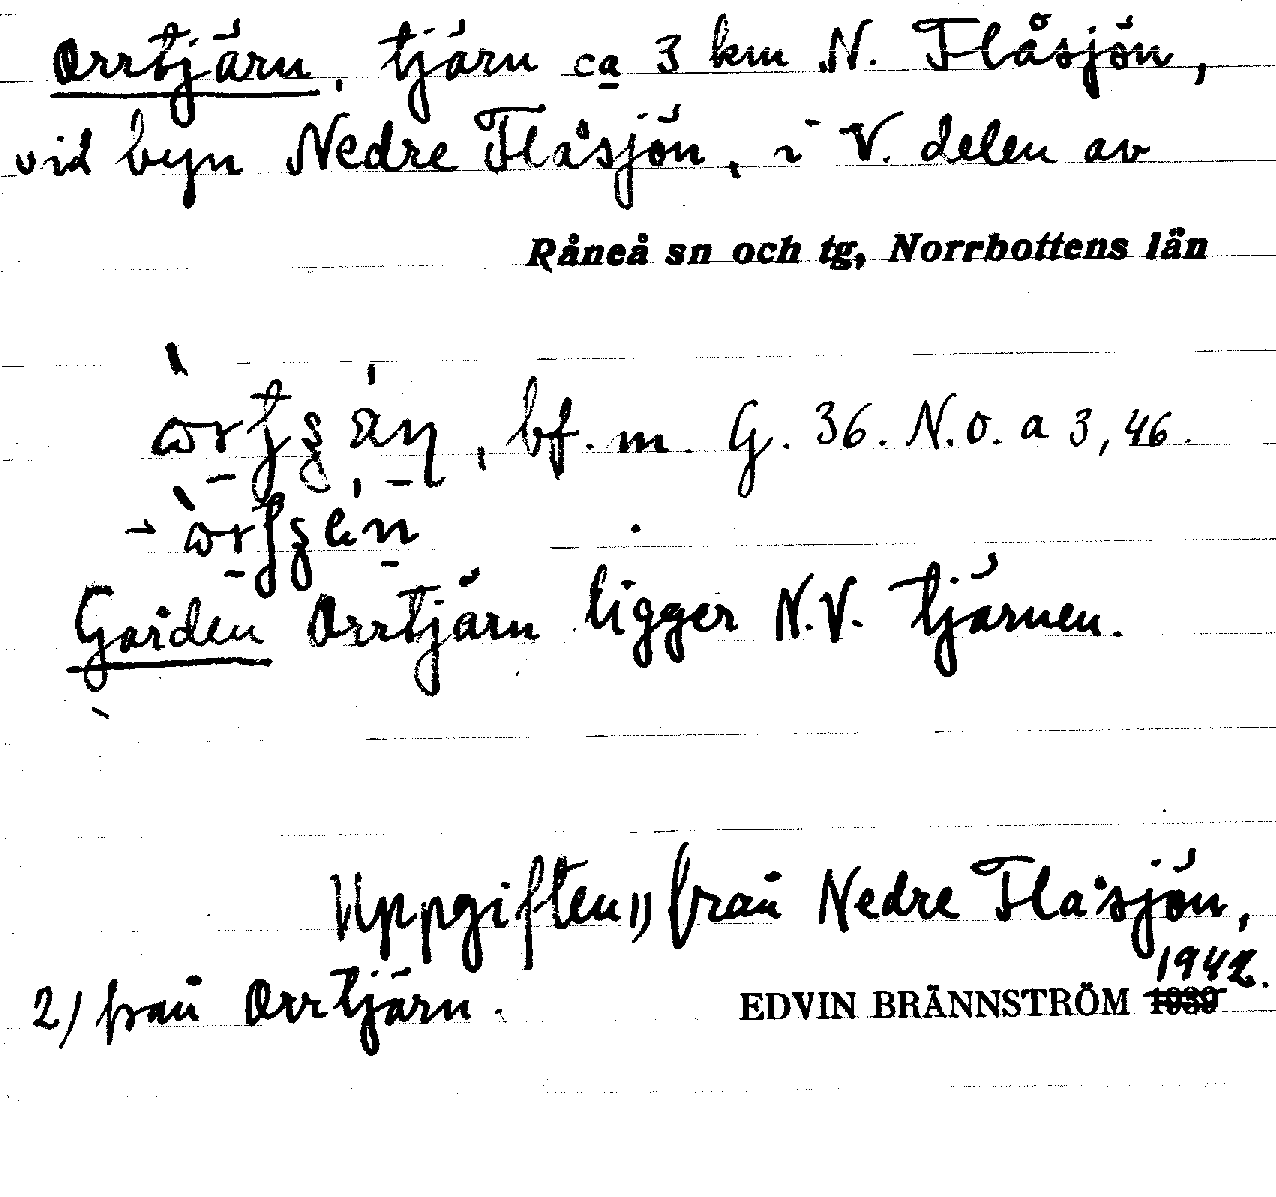 Orrtjärn, tjärn ca 3 km N. Flåsjön,
vid byn Nedre Flåsjön, i V. delen av
Råneå sn och tg, Norrbottens län
, bf. m. G. 36. N.O. a 3,46.
Gården Orrtjärn ligger N.V. tjärnen.
Uppgiften 1) från Nedre Flåsjön,
2) från Orrtjärn.
EDVIN BRÄNNSTRÖM 1939 1942.